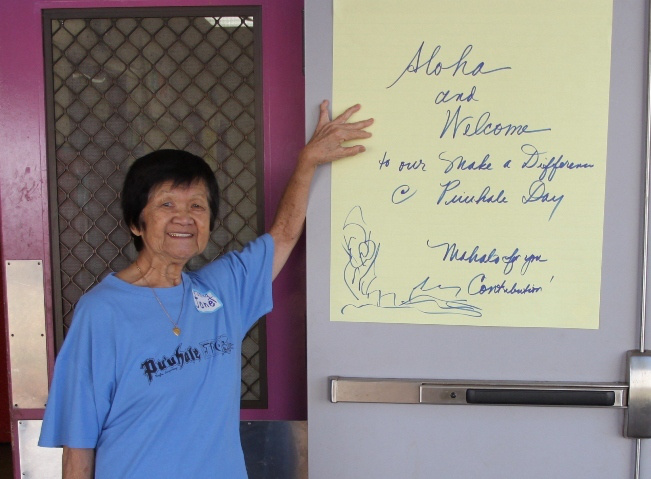 Aloha
and
Welcome
to our Make a Difference
@ Puuhale Day
Mahalo for you
Contribution!
Puuhale